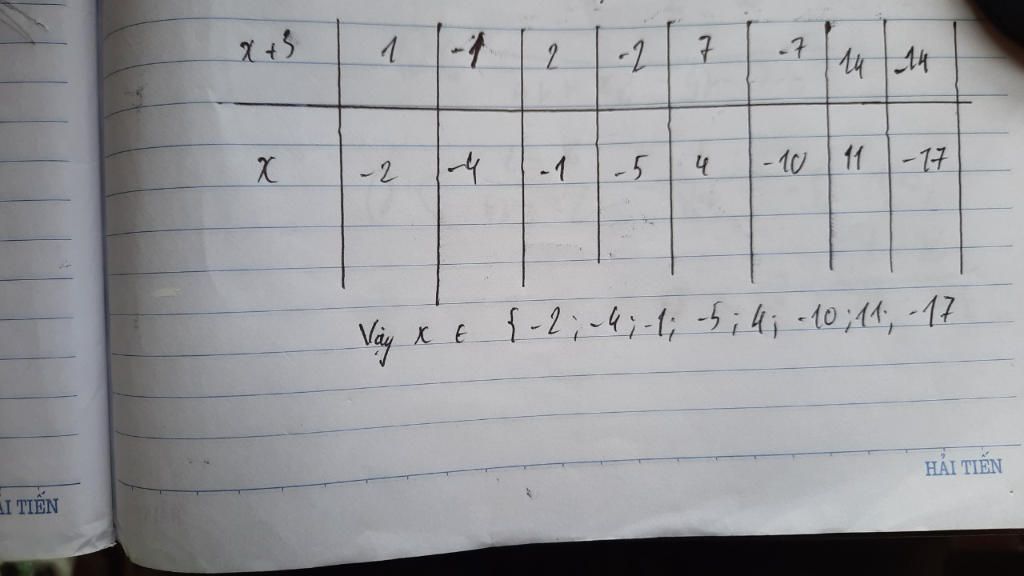 x + 3 1 -1 2 -2 7 -7 14 -14
x -2 -4 -1 -5 4 -10 11 -17
Vậy x ∈ { -2 ; -4 ; -1 ; -5 ; 4 ; -10 ; 11 ; -17
HẢI TIẾN
ẢI TIẾN